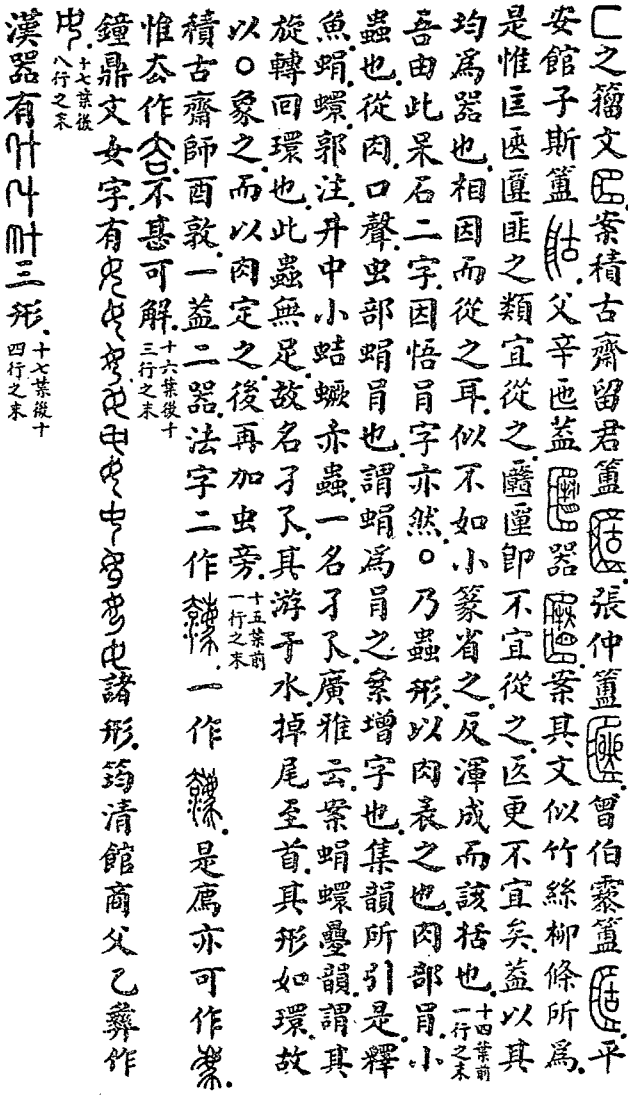 匚之籀文案積古齋留君簠張仲簠曾伯霥簠平
安館子斯簠父辛匜蓋器案其文似竹絲柳條所爲
是惟匡匧匴匪之類宜從之匶匰卽不宜從之匛更不宜矣蓋以其
均爲器也相因而從之耳似不如小篆省之反渾成而該括也十四葉前
一行之末
吾由此杲石二字因悟肙字亦然○乃蟲形以肉表之也肉部肙小
蟲也從肉口聲虫部蜎肙也謂蜎爲肙之絫增字也集韻所引是釋
魚蜎蠉郭注井中小蛣蟩赤蟲一名孑孓廣雅云案蜎蠉疊韻謂其
旋轉回環也此蟲無足故名孑孓其游于水掉尾至首其形如環故
以○象之而以肉定之後再加虫旁十五葉前
一行之末
積古齋師酉敦一蓋二器法字二作一作是廌亦可作
惟厺作不甚可解十六葉後十
三行之末
鐘鼎文女字有諸形筠清館商父乙彝作
十七葉後
八行之末
漢器有三形十七葉後十
四行之末